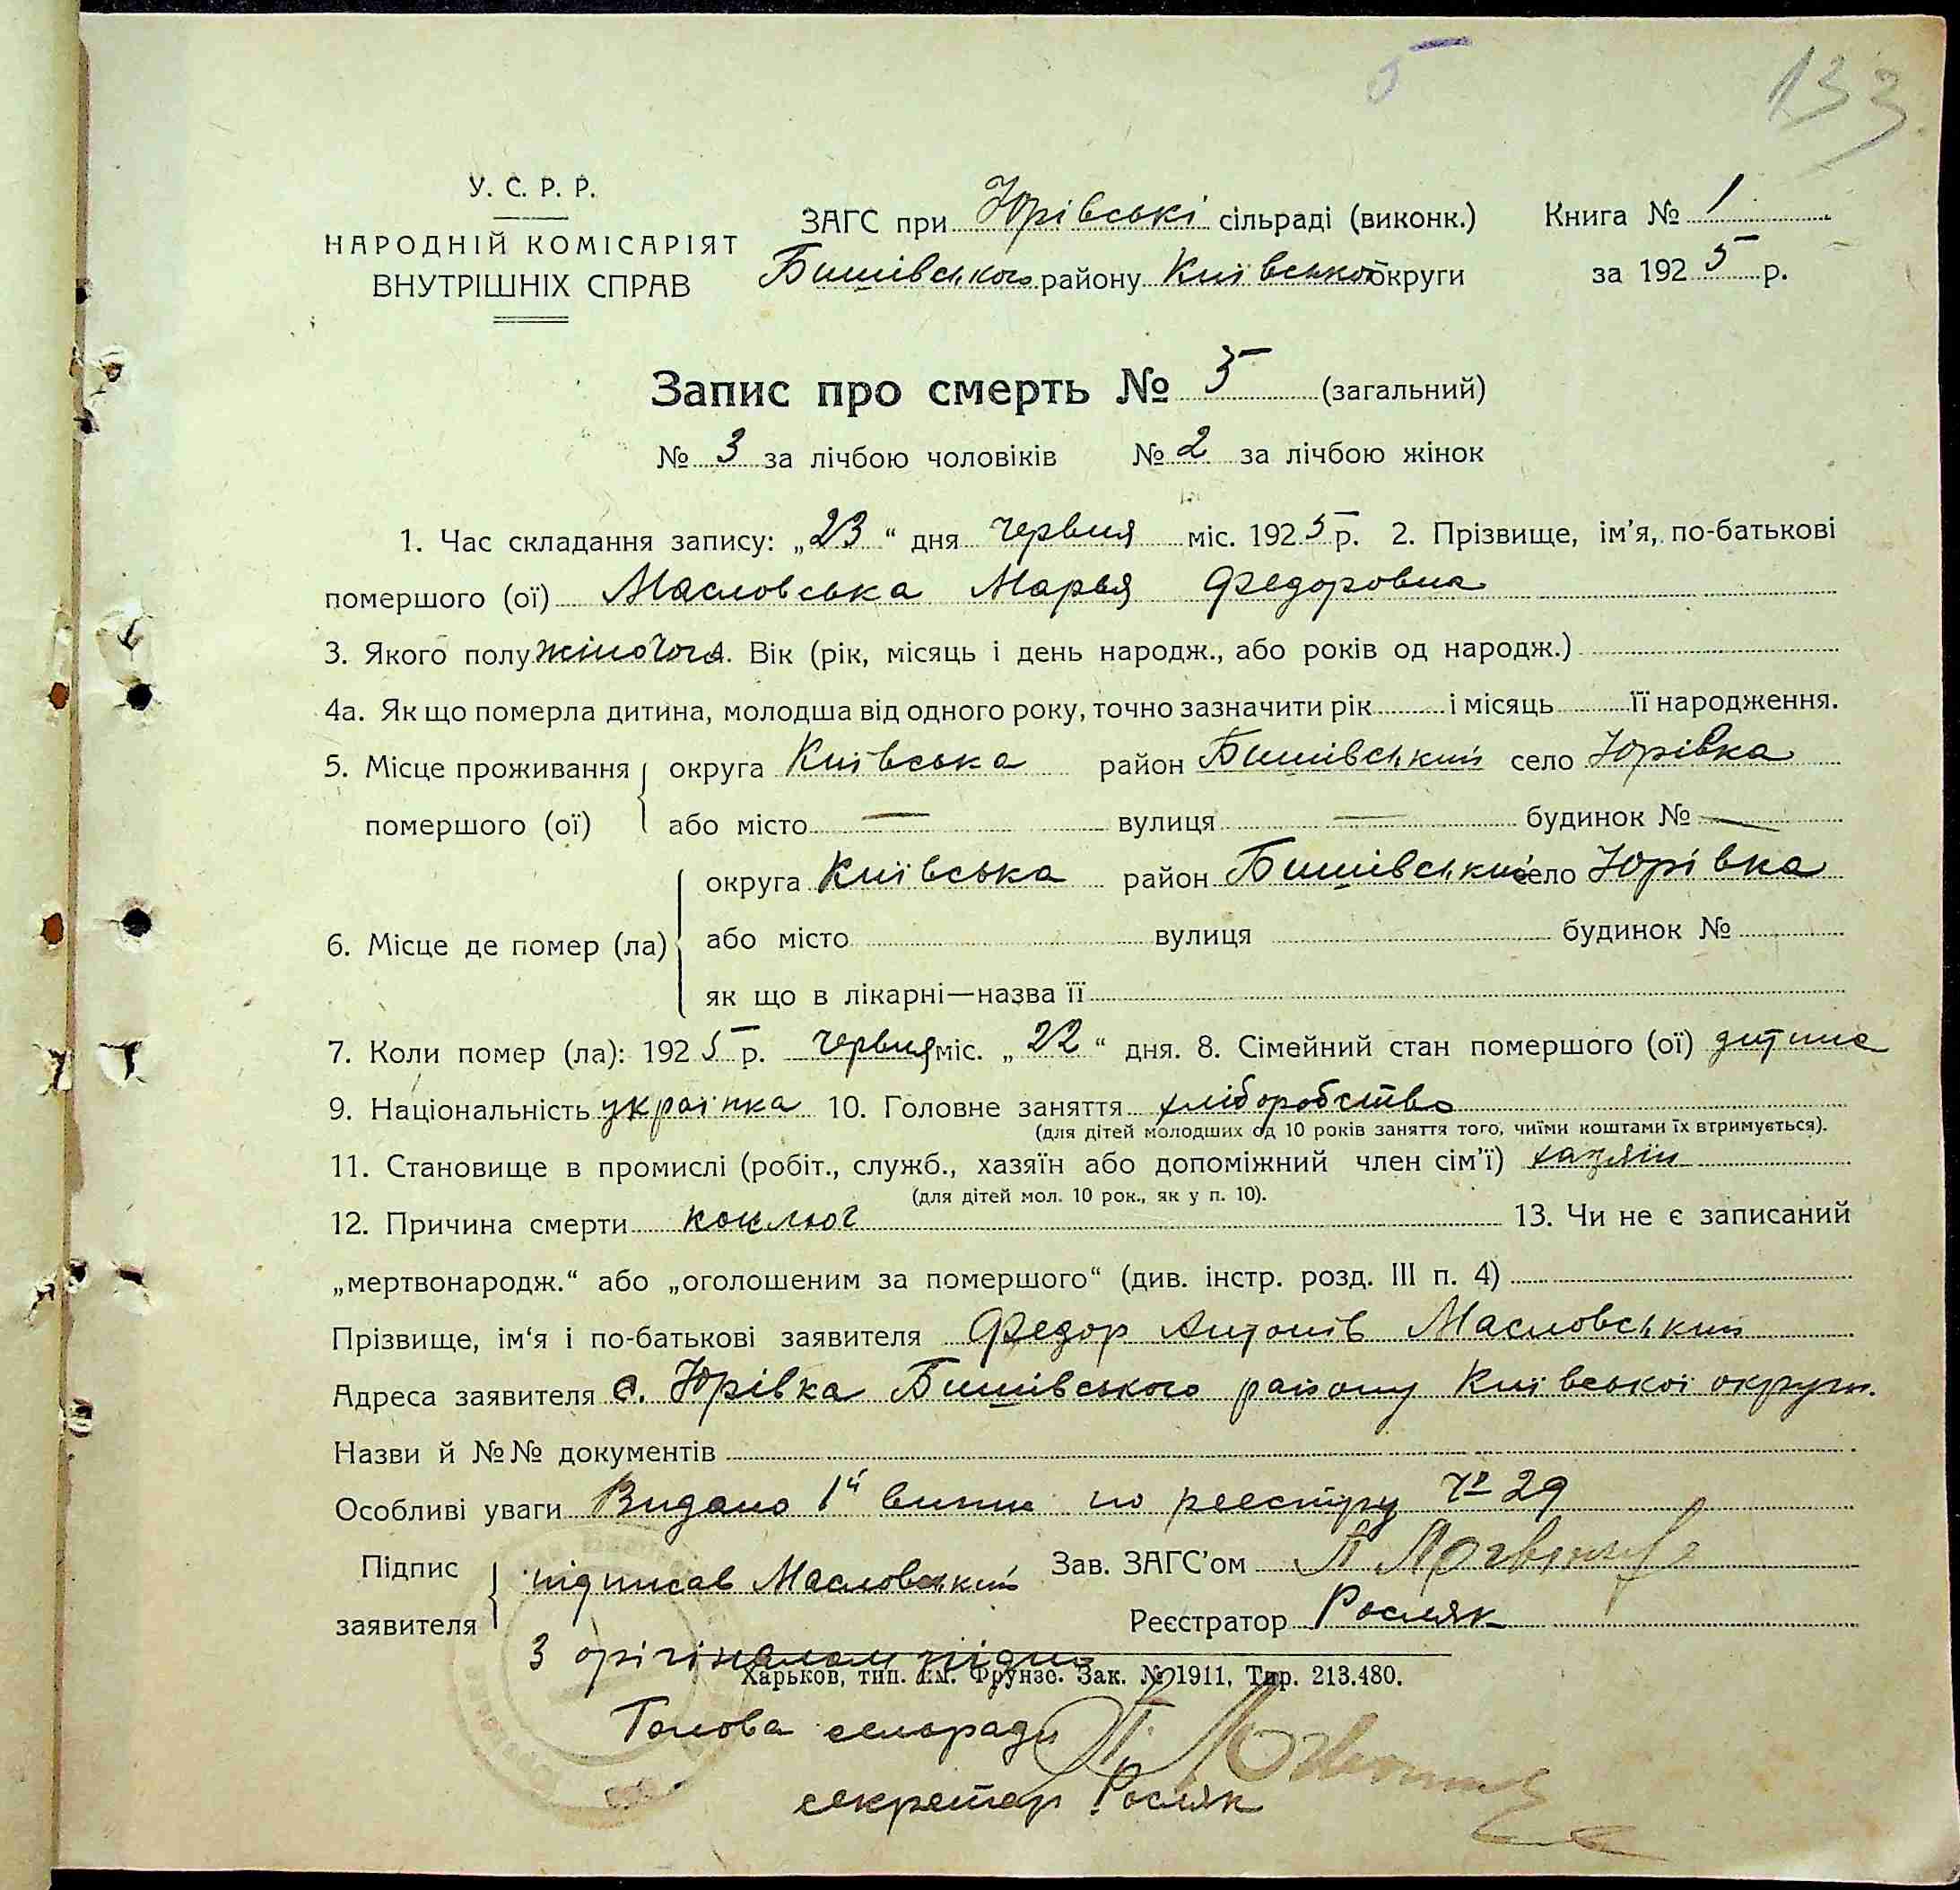 5
133
У. С. Р. Р.
НАРОДНІЙ КОМІСАРІЯТ
ВНУТРІШНІХ СПРАВ
ЗАГС при Юрівські сільраді (виконк.) Книга № 1
Бишівського району Київської округи за 1925 р.
Запис про смерть № 5 (загальний)
№ 3 за лічбою чоловіків № 2 за лічбою жінок
1. Час складання запису: „23“ дня червня міс. 1925 р. 2. Прізвище, ім’я, по-батькові
помершого (ої) Масловська Марья Федоровна
3. Якого полу жіночого. Вік (рік, місяць і день народж., або років од народж.)
4а. Як що померла дитина, молодша від одного року, точно зазначити рік і місяць її народження.
5. Місце проживання округа Київська район Бишівський село Юрівка
помершого (ої) або місто — вулиця — будинок № —
округа Київська район Бишівський село Юрівка
6. Місце де помер (ла) або місто вулиця будинок №
як що в лікарні—назва її
7. Коли помер (ла): 1925 р. червня міс. „22“ дня. 8. Сімейний стан помершого (ої) дитина
9. Національність українка 10. Головне заняття хліборобство
(для дітей молодших од 10 років заняття того, чиїми коштами їх втримується).
11. Становище в промислі (робіт., служб., хазяїн або допоміжний член сім’ї) хазяїн
(для дітей мол. 10 рок., як у п. 10).
12. Причина смерти коклюг 13. Чи не є записаний
„мертвонародж.“ або „оголошеним за помершого“ (див. інстр. розд. III п. 4)
Прізвище, ім‘я і по-батькові заявителя Федор Антонів Масловський
Адреса заявителя с. Юрівка Бишівського району Київської округи.
Назви й №№ документів
Особливі уваги Видано 1й випис по реестру № 29
Підпис заявителя підписав Масловський Зав. ЗАГС’ом П
Реєстратор Росляк
З орігіналом вірно
Харьков, тип. им. Фрунзе. Зак. № 1911. Тир. 213.480.
Голова сельради П.
секретар Росляк